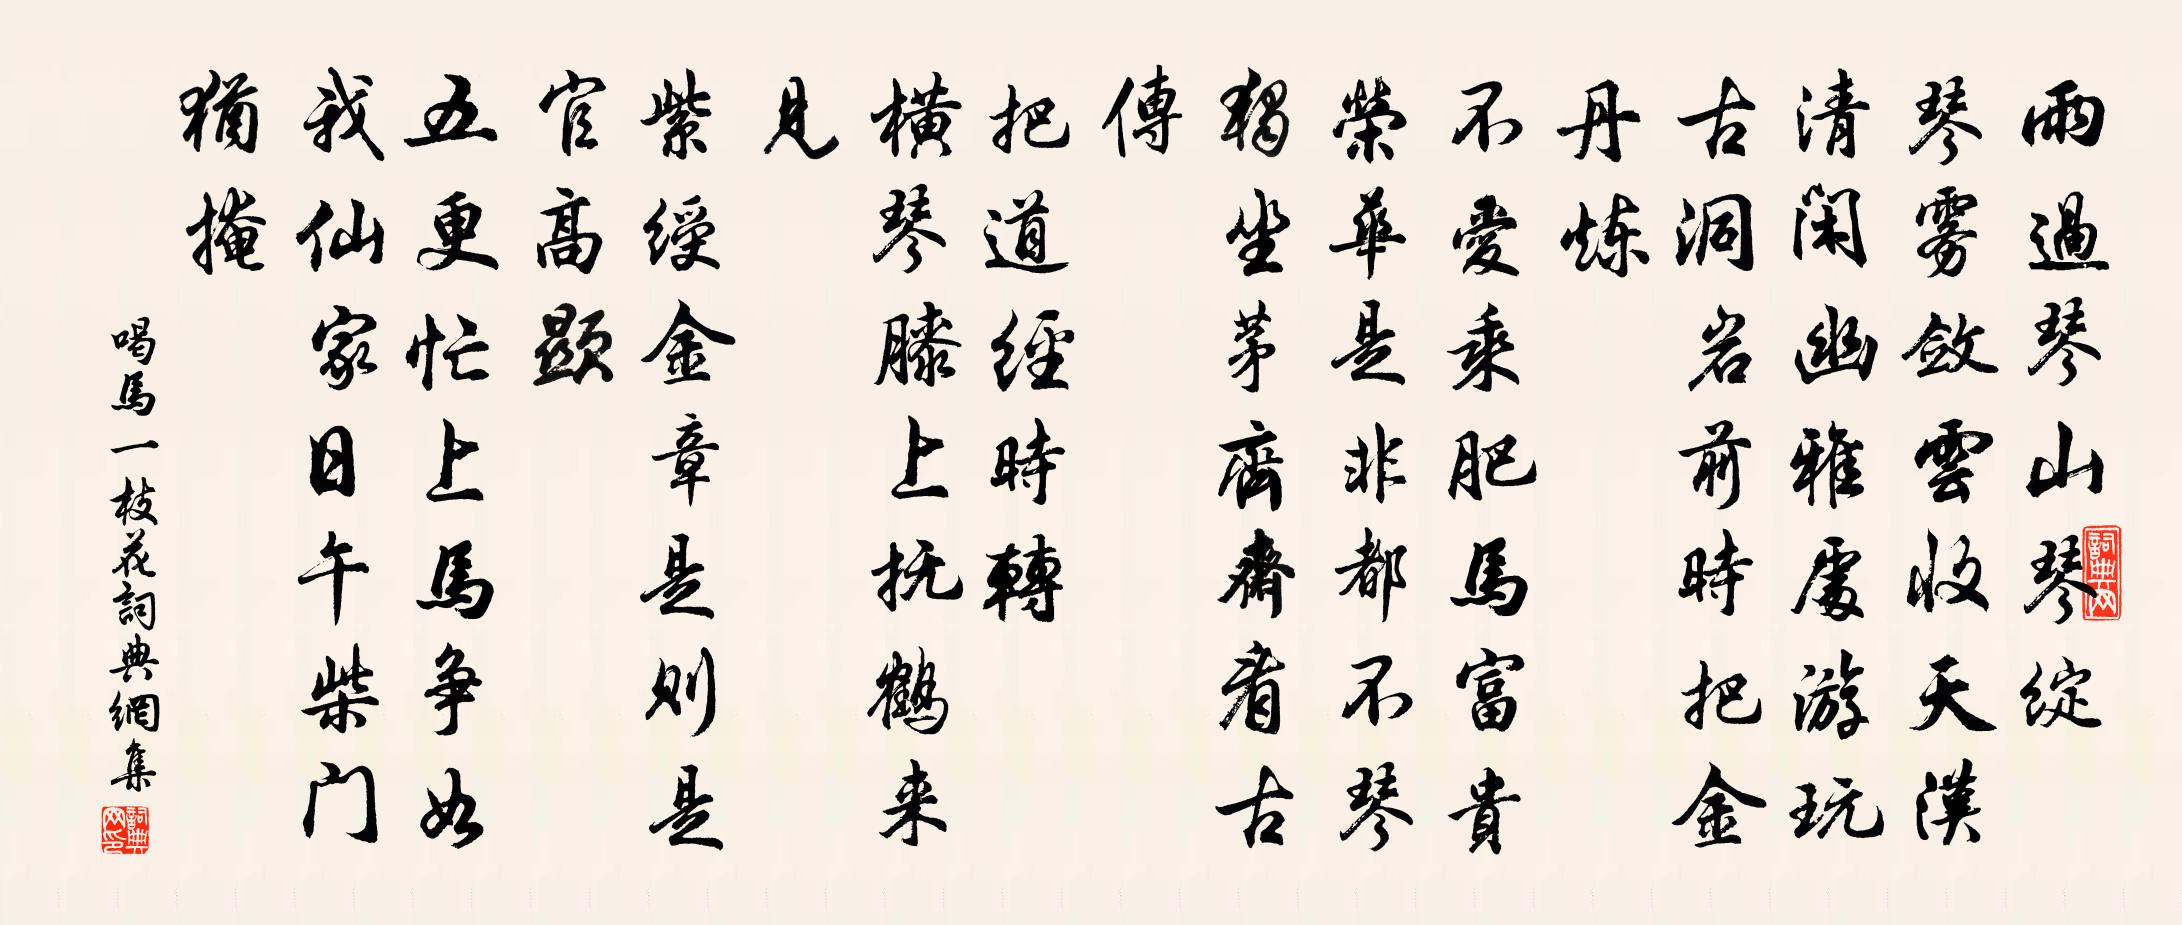 雨過琴山琴綻
琴雾斂雲收天漢
清閑幽雅處游玩
古洞岩前時把金
丹煉
不愛乘肥馬富貴
榮華是非都不琴
獨坐茅齋齋看古
傳
把道經時轉
橫琴膝上抚鶴来
見
紫綬金章是則是
官高顯
五更忙上馬争如
我仙家日午柴门
猶掩
喝馬一枝花詞典網集
詞典网
詞典网印